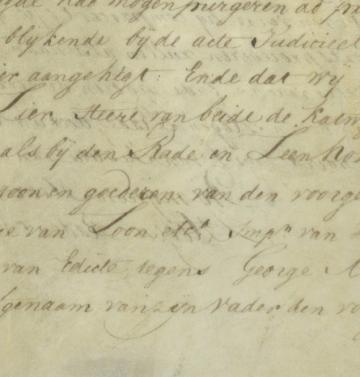 mogen purgeren ad
blijkende bij de acte Judicieel
aangehegt: Ende dat wij
Lier Heere van beide de Katw
als bij den Rade en Leenho
soon en goederen van den voorge
van Loon, etc. Impn van
van Edicte, tegens George
genaam van zijn Vader den vo